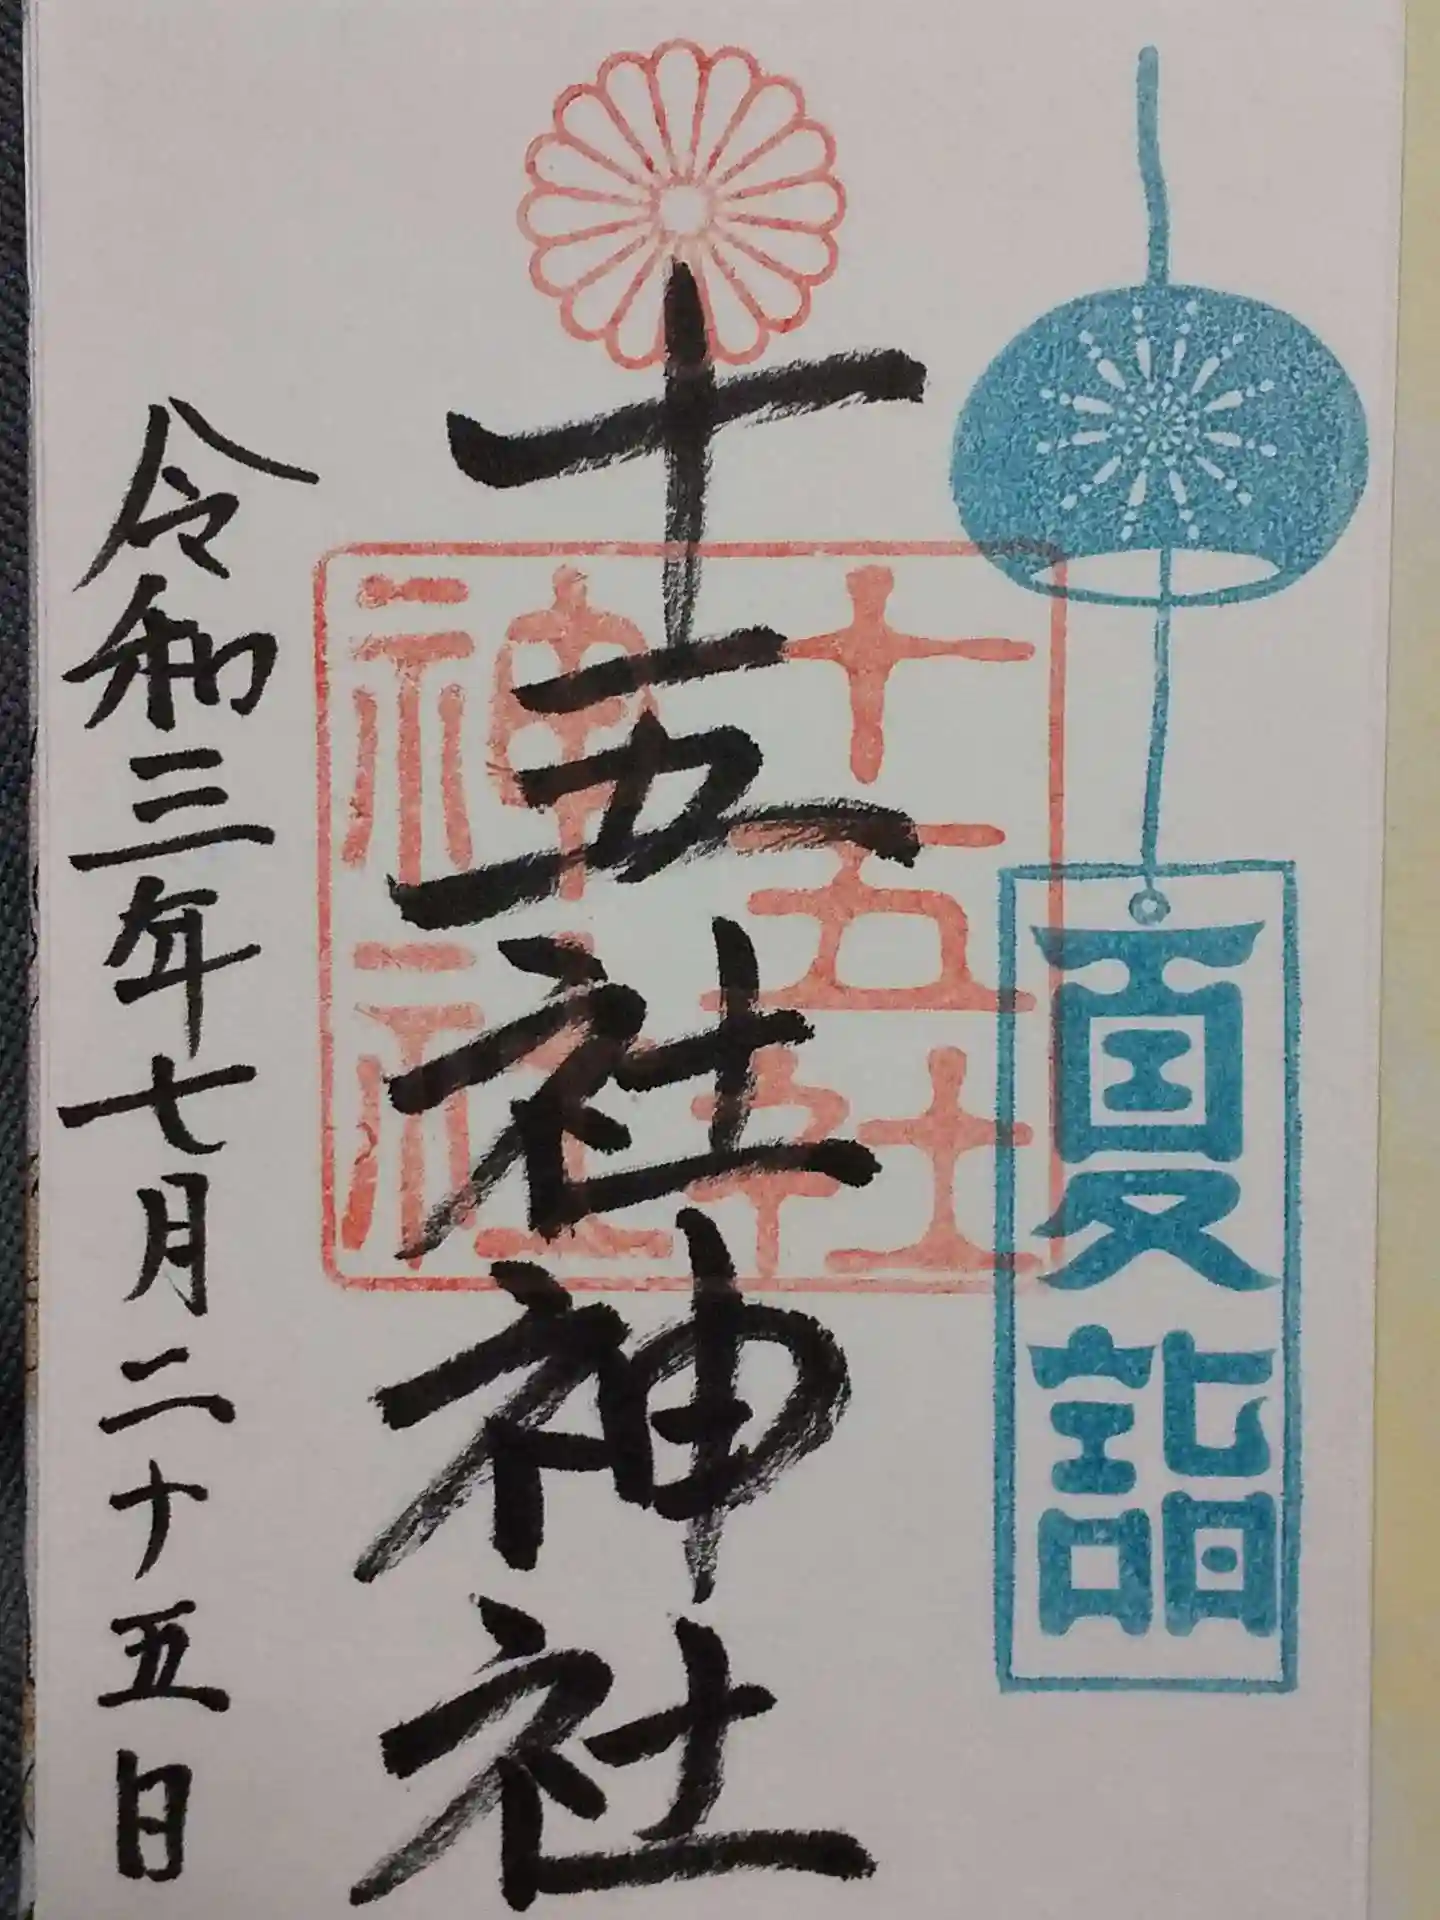 夏詣
十五社
神社
十五社神社
令和三年七月二十五日